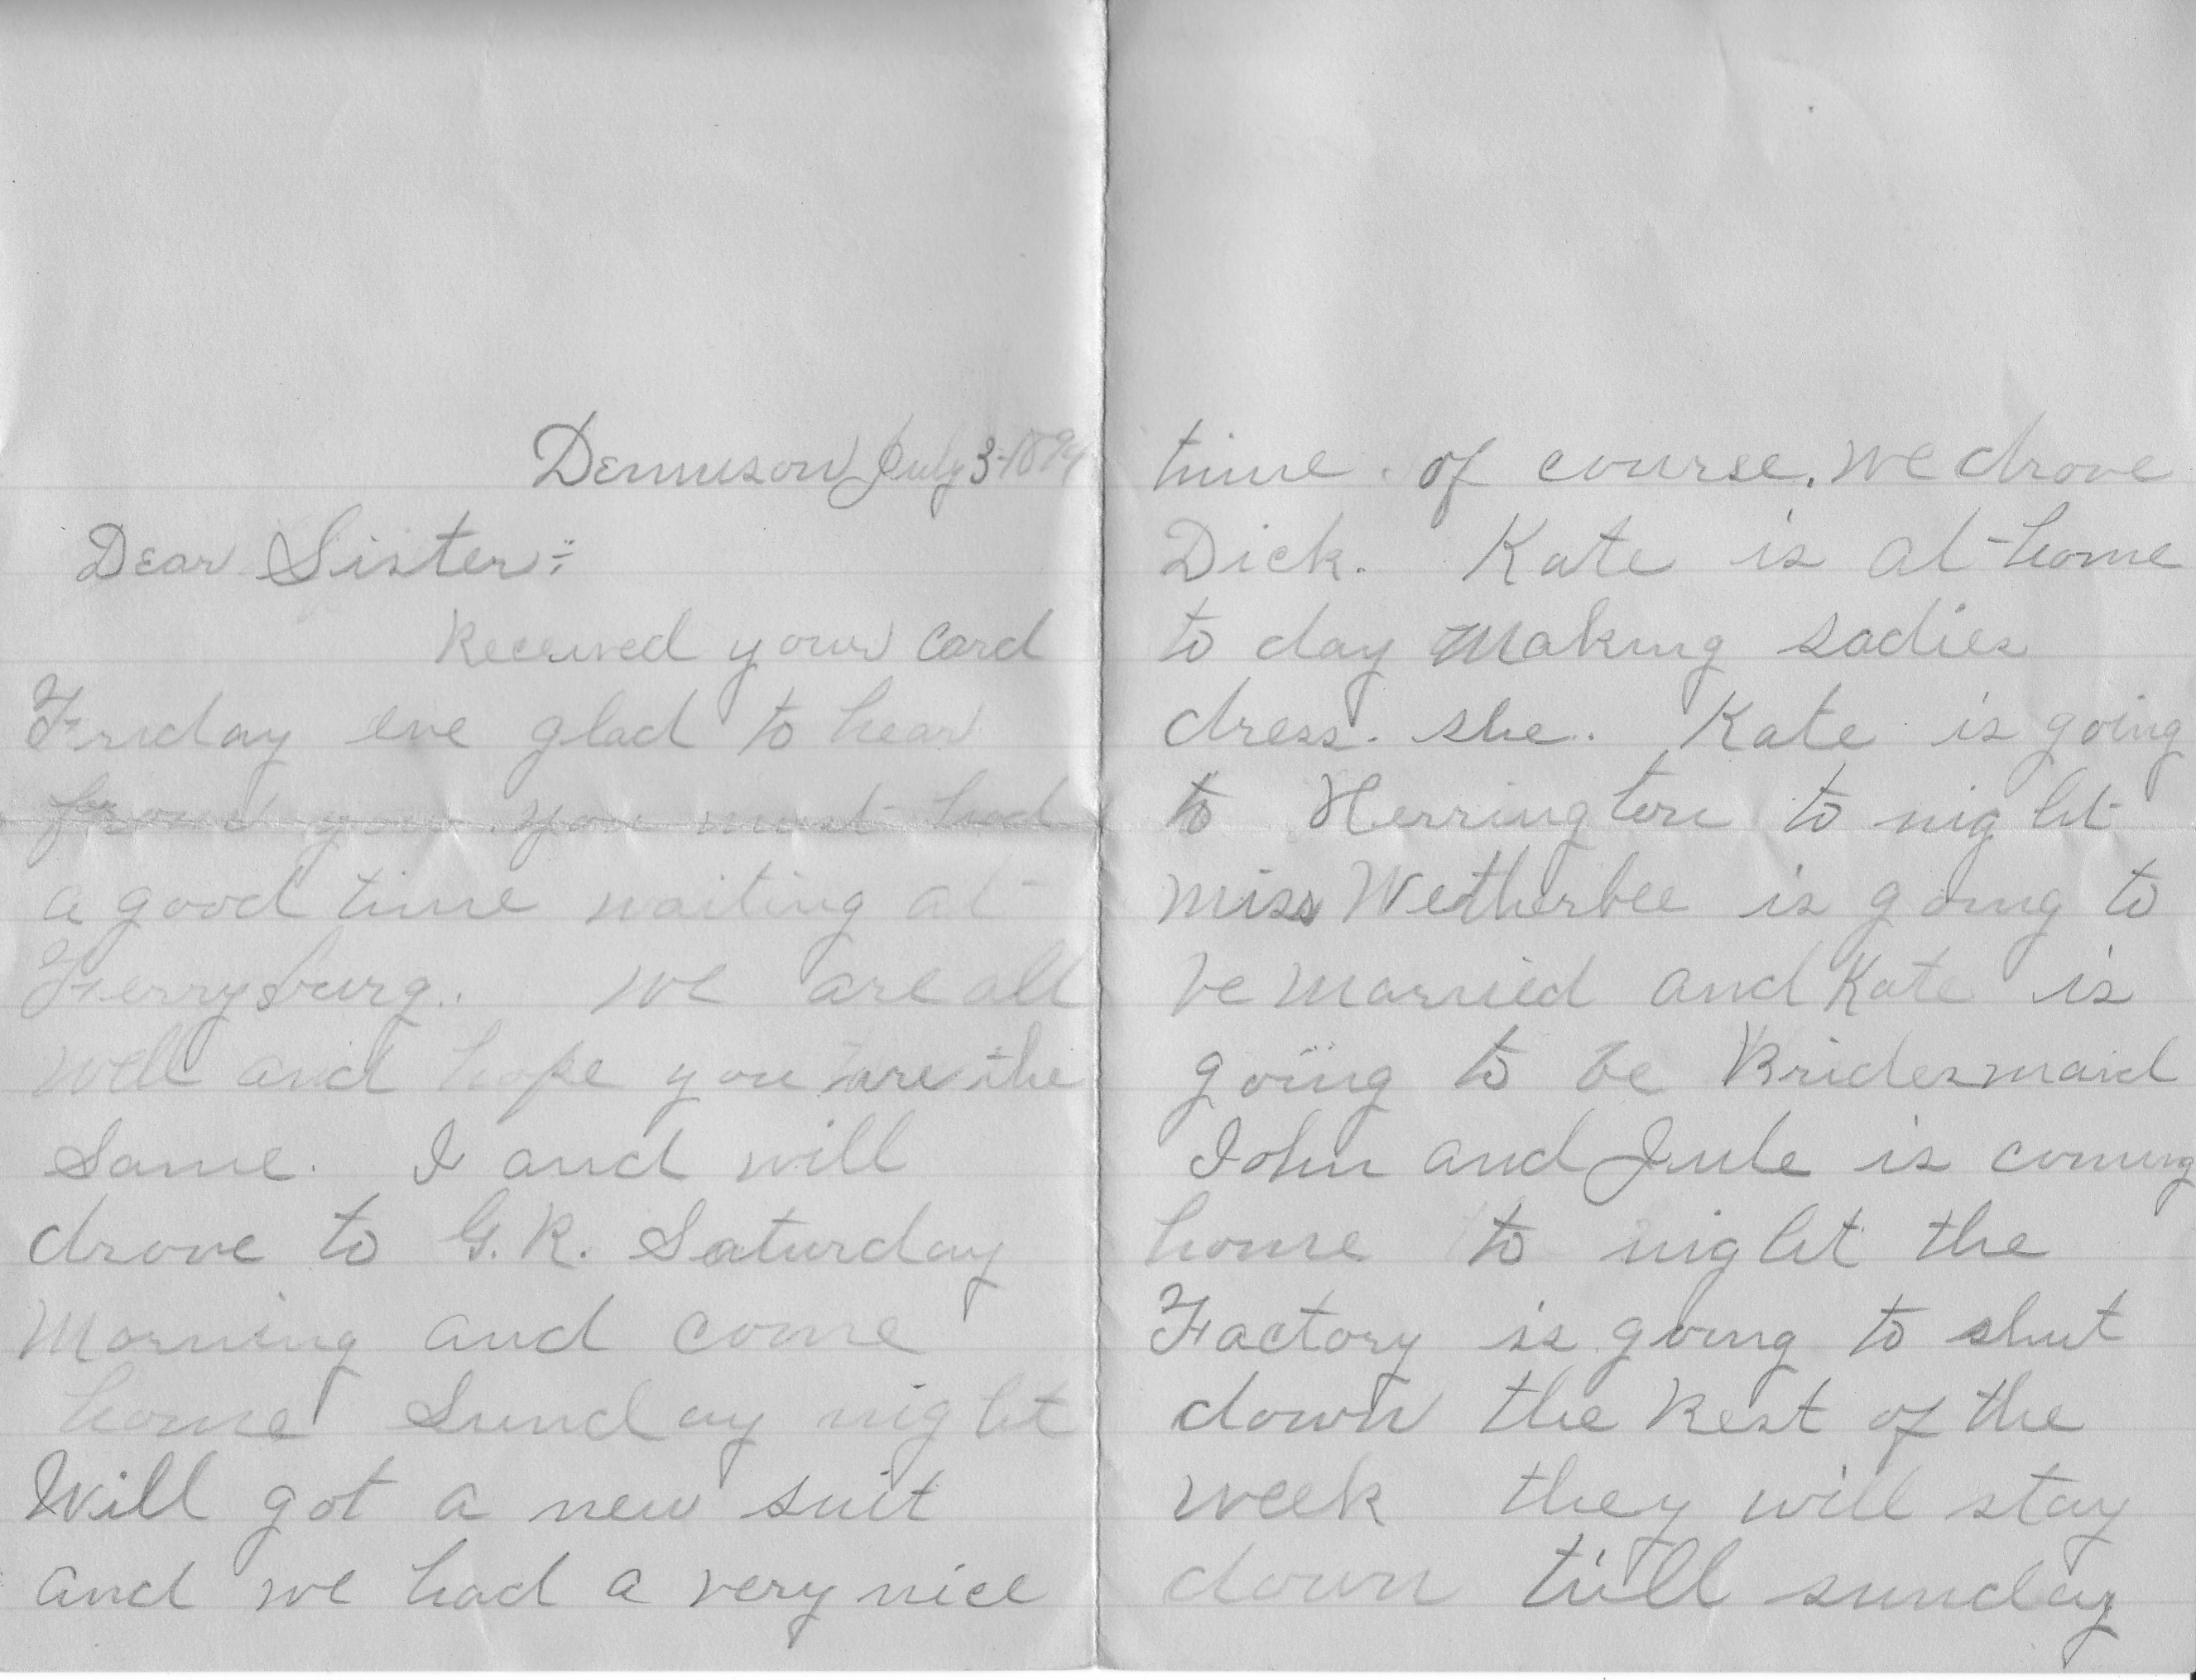 Dennison July 3-1894
Dear Sister:
Received your card
Friday eve glad to hear
from you. you must had
a good time waiting at
Ferrysburg. we are all
well and hope you are the
Same. I and will
drove to G.R. Saturday
Morning and come
home Sunday night
Will got a new suit
and we had a very nice
time. of course. we drove
Dick. Kate is at home
to day making sadies
dress. she. Kate is going
to Herrington to night
miss Wetherbee is going to
be married and Kate is
going to be Bridesmaid
John and Jule is coming
home to night the
Factory is going to shut
down the Rest of the
week they will stay
down till sunday